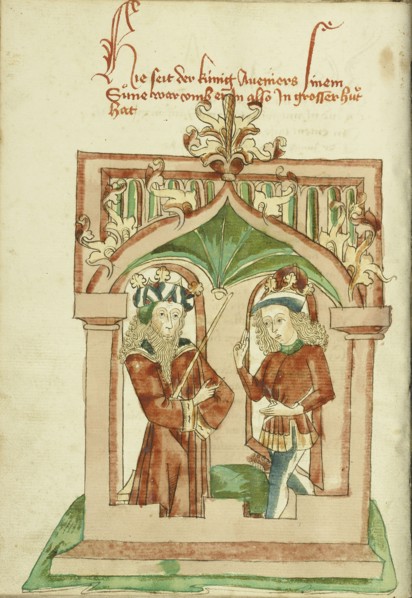 Hie seit der künig Aveniers sinem
Sune war umb er in also In grosser hůt
hat